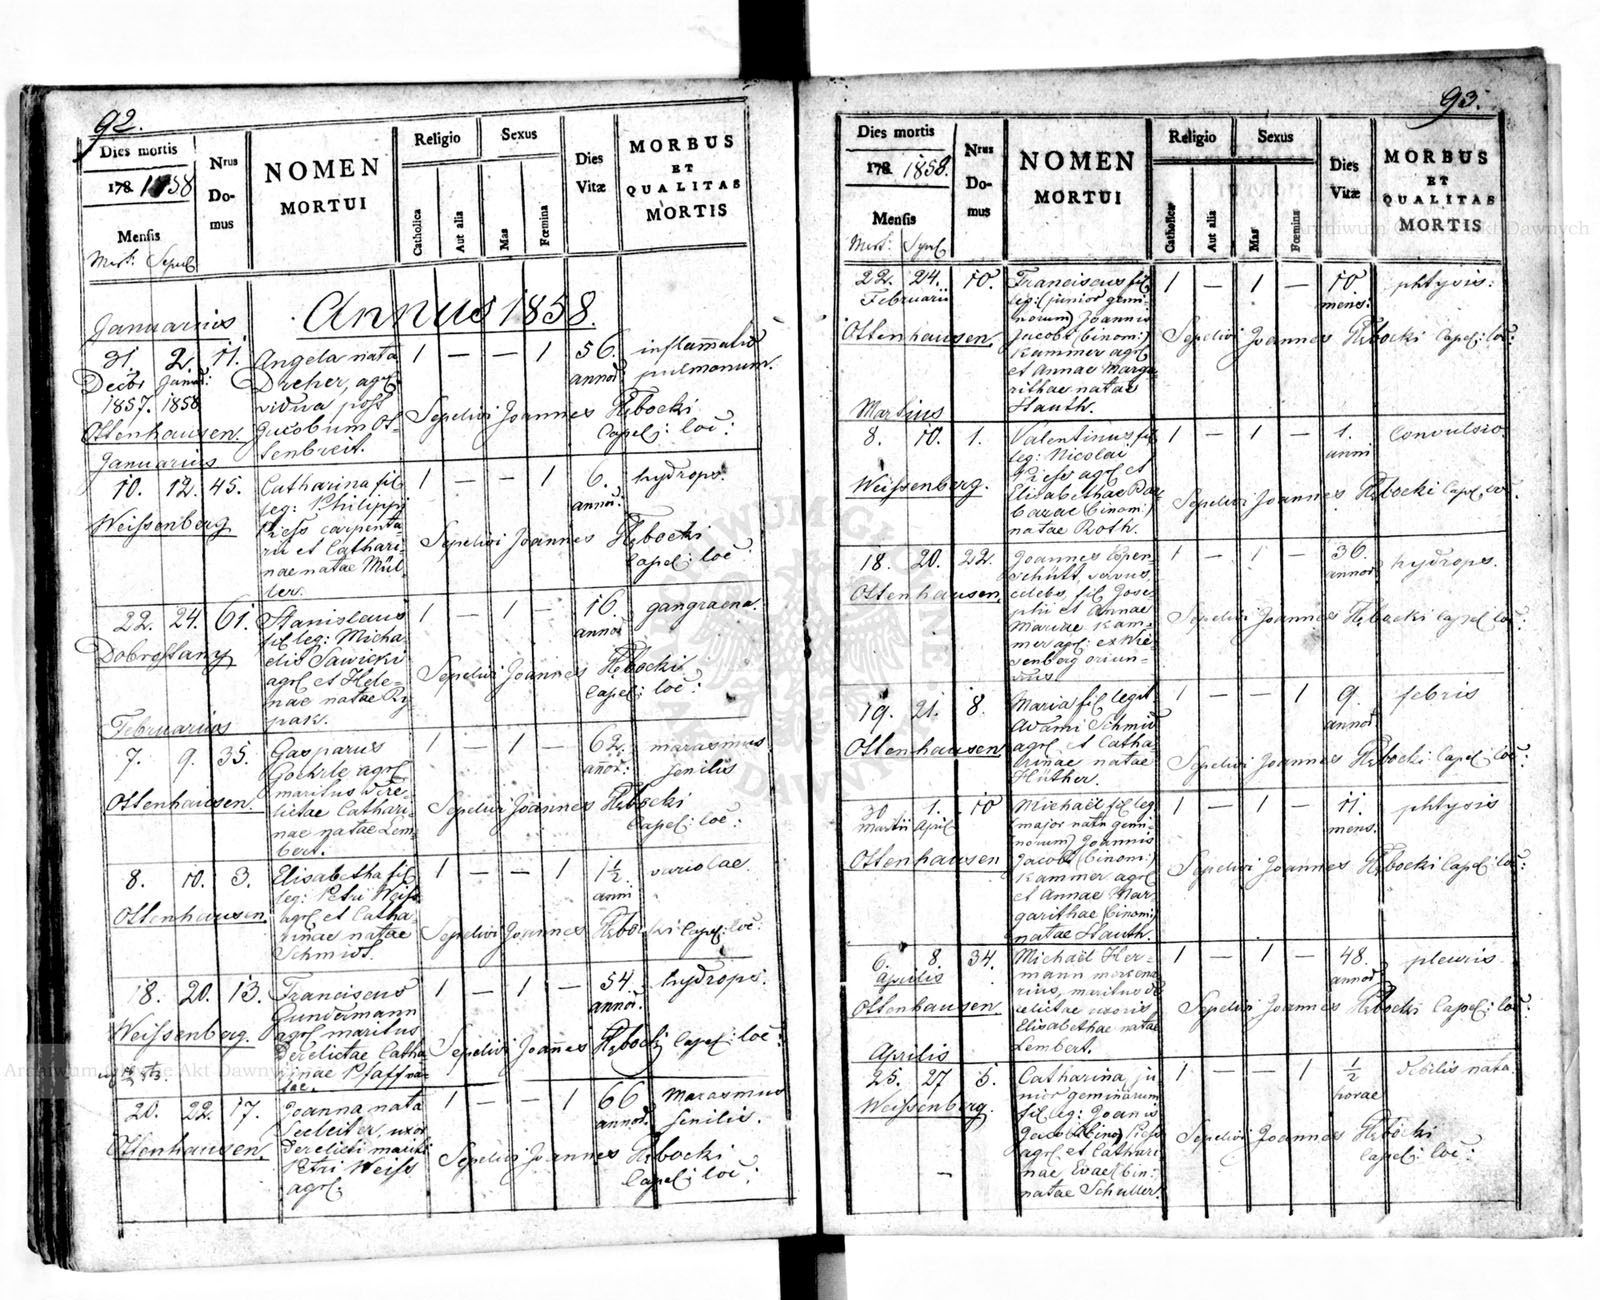 92.
Dies mortis
178 1858
Mensis
Mort: Sepul.
Nrus Domus
NOMEN
MORTUI
Religio
Catholica
Aut alia
Sexus
Mas
Fœmina
Dies Vitæ
MORBUS
ET
QUALITAS
MORTIS
Annus 1858.
Januarius
31. 2. 11. Angela nata 1 — — 1 56. inflammatio
Decbr Januar: Dreher, agrl annor. pulmonum.
1857. 1858 vidua post Sepelivi Joannes
Ottenhausen. Jacobum Ot- Capel: loc:
tenbreit.
Januarius
10. 12. 45. Catharina fil 1 — — 1 6. hydrops.
leg: Philippi annor:
Weissenberg Kiefs carpenta-
rii et Cathari- Sepelivi Joannes
nae natae Mül- Capel: loc:
ler.
22. 24. 61. Stanislaus 1 — 1 — 16. gangraena.
fil leg: Micha- annor
Dobrostany elis Sawicki
agrl et Hele- Sepelivi Joannes
nae natae Ry- Capel: loc:
pak.
Februarius
7. 9. 35. Gasparus 1 — 1 — 62. marasmus
agrl annor: senilis
maritus dere-
Ottenhausen. lictae Cathari- Sepelivi Joannes
nae natae Lem- Capel: loc:
bert.
8. 10. 3. Elisabetha fil 1 — — 1 1½ variolae.
leg: Petri Weiss anni
Ottenhausen. agrl et Catha-
rinae natae Sepelivi Joannes Capel: loc:
Schmidt.
18. 20. 13. Franciscus 1 — 1 — 54. hydrops.
Gundermann annor.
Weissenberg. agrl maritus
derelictae Catha- Sepelivi Joannes Capel: loc:
rinae Pfaff na-
tae.
20. 22. 17. Joanna nata 1 — — 1 66 Marasmus
uxor annor. senilis.
Ottenhausen. derelicti mariti Sepelivi Joannes
Petri Weiss Capel: loc:
agrl.
93.
Dies mortis
178 1858.
Mensis
Mort: Sepul
Nrus Domus
NOMEN
MORTUI
Religio
Catholica
Aut alia
Sexus
Mas
Fœmina
Dies Vitæ
MORBUS
ET
QUALITAS
MORTIS
22. 24. 10. Franciscus fil 1 — 1 — 10 phtysis:
Februarii leg: (junior gemi- mens:
norum) Joannis
Ottenhausen. Jacobi (binom:) Sepelivi Joannes Capel: loc:
Kammer agrl
et Annae Marga-
rithae natae
Hauth.
Martius
8. 10. 1. Valentinus fil 1 — 1 — 1. Convulsio.
leg: Nicolai anni
Kiefs agrl et
Weissenberg. Elisabethae Bar- Sepelivi Joannes Capel. loc:
barae (binom:)
natae Roth.
18. 20. 22. Joannes 1 — 1 — 36. hydrops.
servus, annor
Ottenhausen. celebs, fil Jose-
phi et Annae Sepelivi Joannes Capel loc:
Mariae Kam-
mer agrl ex Wie-
senberg oriun-
dus
19. 21. 8. Maria fil legit 1 — — 1 9. febris
Adami Schmid annor
Ottenhausen agrl et Catha- Sepelivi Joannes Capel: loc:
rinae natae
Hüther.
30 1. 10 Michaël fil leg 1 — 1 — 11. phtysis
Martii April (major natu gemi- mens.
norum) Joannis
Ottenhausen Jacobi (binom:) Sepelivi Joannes Capel: loc:
Kammer agrl
et Annae Mar-
garithae (binom:)
natae Hauth.
6. 8. 34. Michaël Her- 1 — 1 — 48. pleuris.
Aprilis mann mercena- annor
rius, maritus de-
Ottenhausen. relictae uxoris Sepelivi Joannes Capel: loc:
Elisabethae natae
Lembert.
Aprilis
25. 27 5. Catharina ju- 1 — — 1 ½ debilis nata.
nior geminarum horae
Weissenberg. fil leg: Joanis
Jacobi (bino) Kiefs Sepelivi Joannes
agrl et Cathari- Capel: loc:
nae Evae (bin:)
natae Schuller.
Archiwum Główne Akt Dawnych